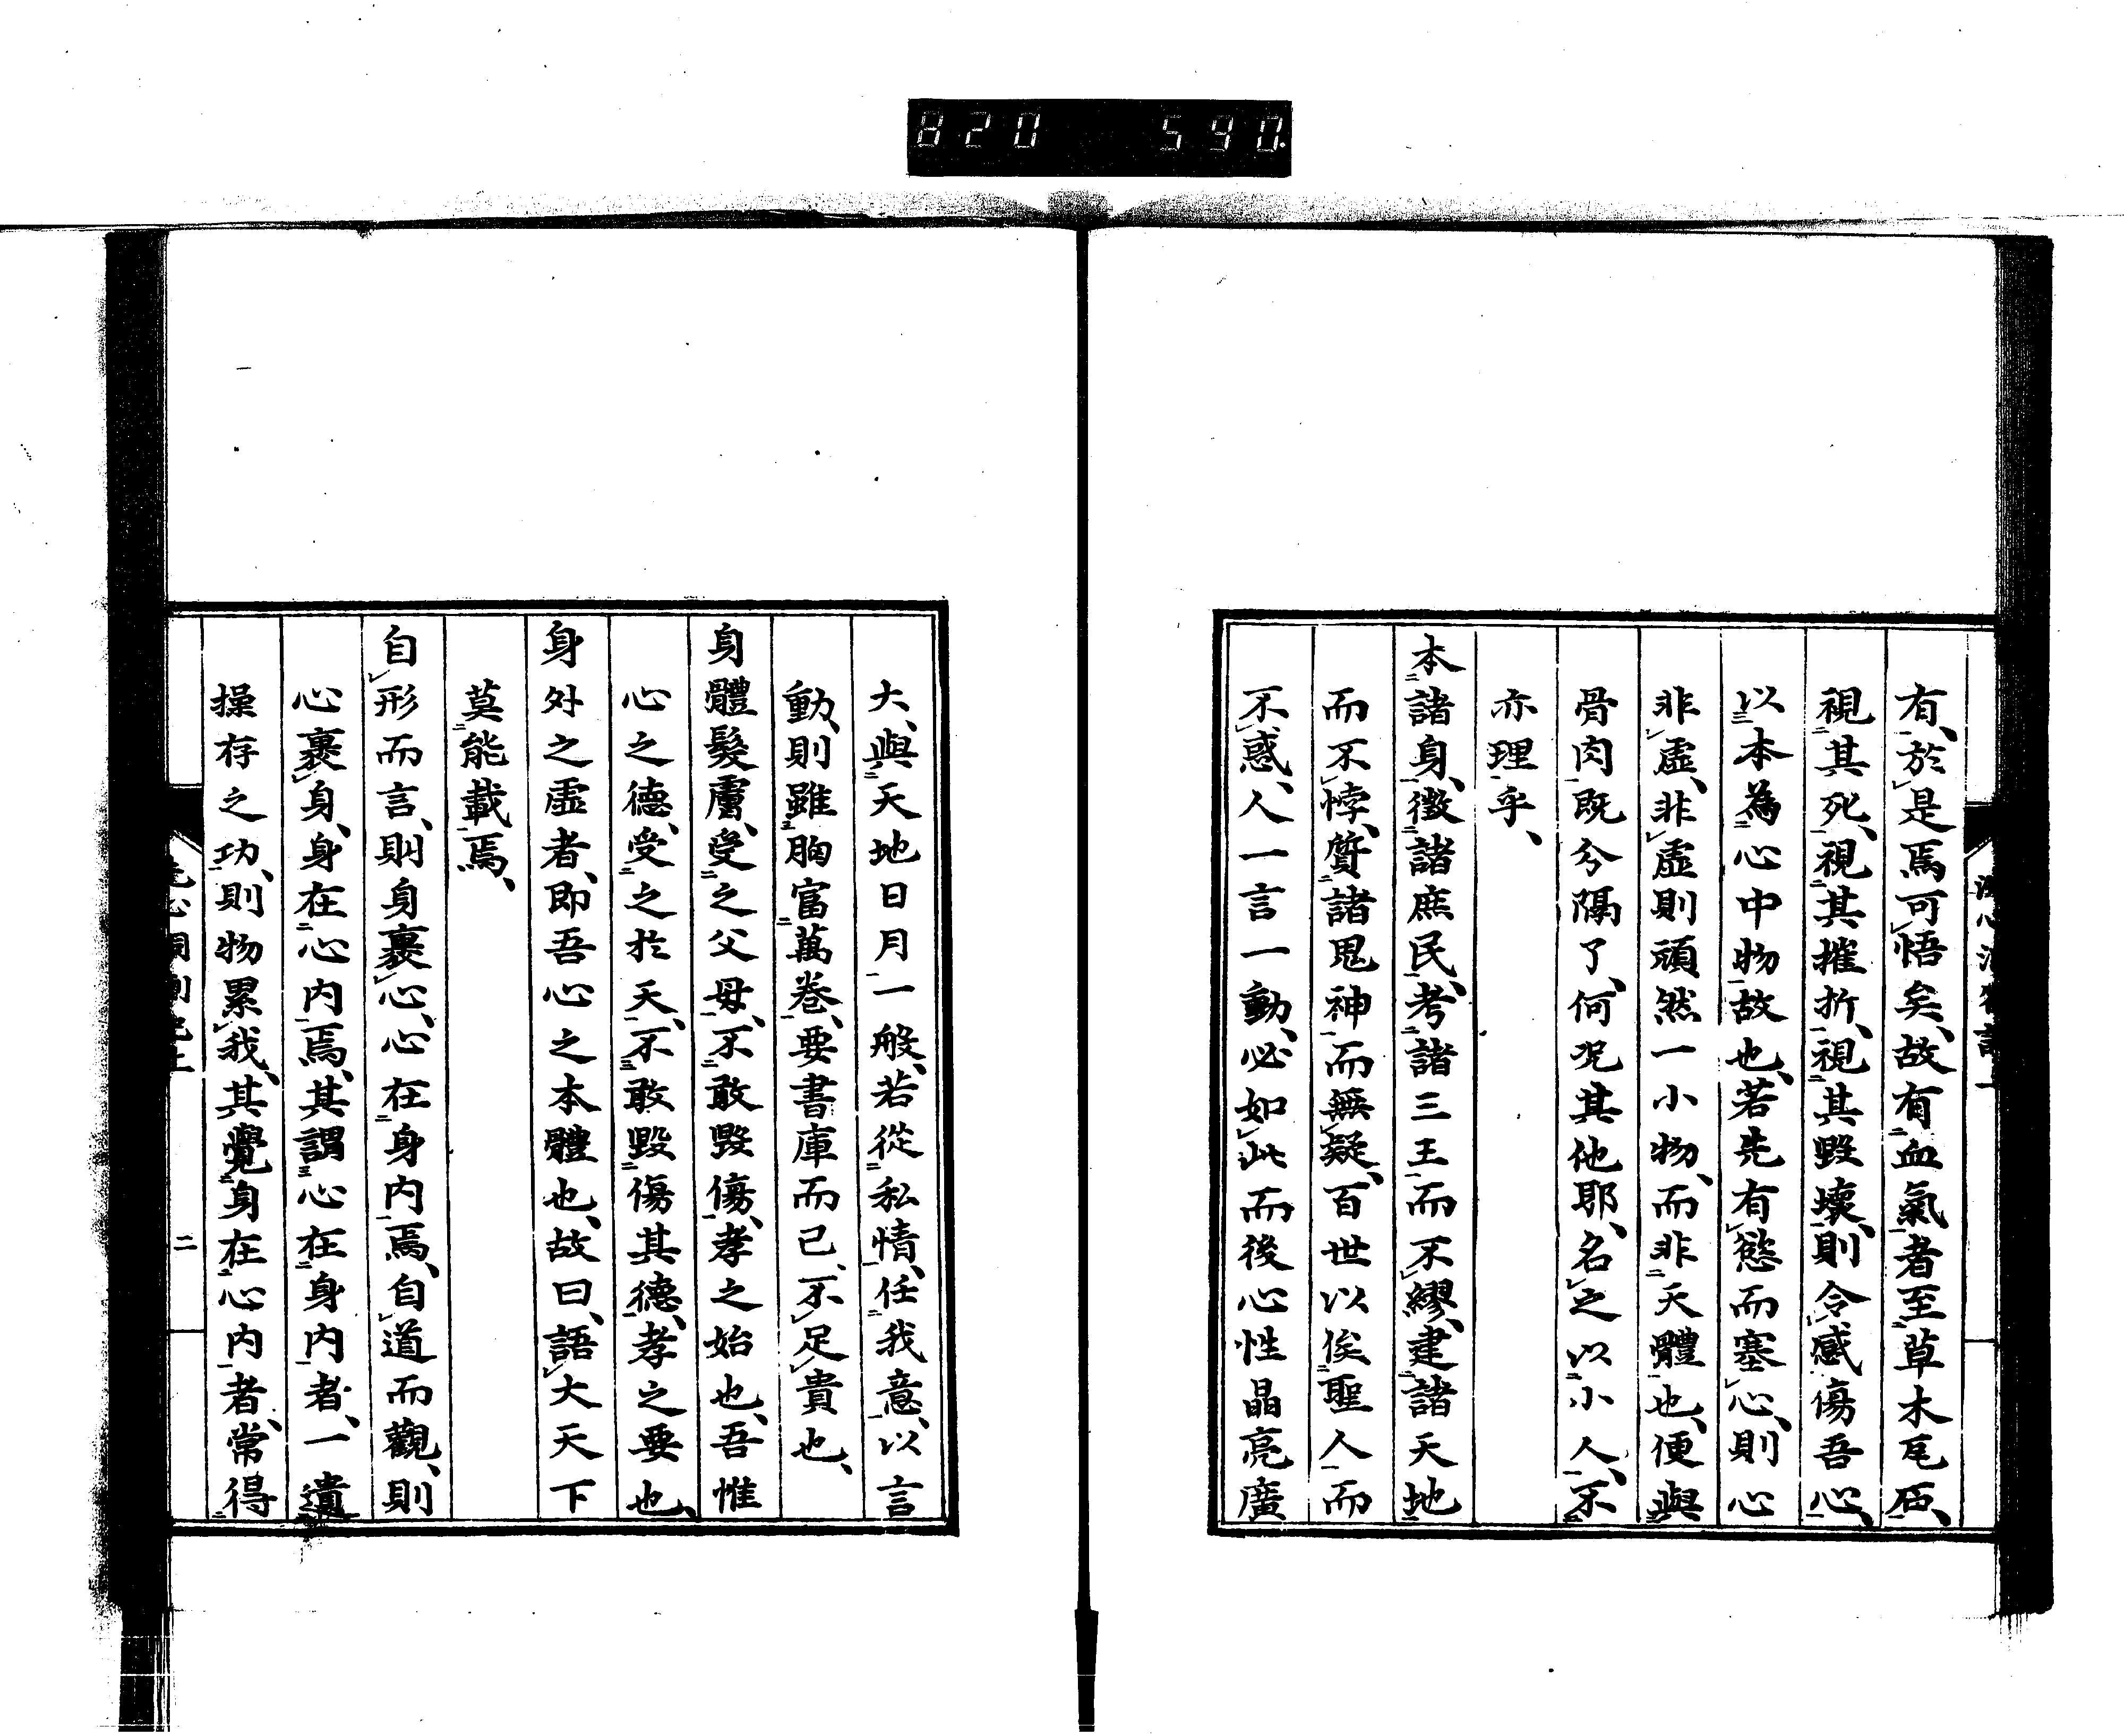 820 590.
有、於是焉可悟矣、故有血氣者至草木瓦石、
視其死、視其摧折、視其毀壞、則令感傷吾心、
以本為心中物故也、若先有慾而塞心、則心
非虛、非虛則頑然一小物、而非天體也、便與
骨肉既分隔了、何況其他耶、名之以小人、不
亦理乎、
本諸身、徵諸庶民、考諸三王而不繆、建諸天地
而不悖、質諸鬼神而無疑、百世以俟聖人而
不惑、人一言一動、必如此而後心性晶亮廣
大、與天地日月一般、若從私情、任我意、以言
動、則雖胸富萬卷、要書庫而已、不足貴也、
身體髮膚、受之父母、不敢毀傷、孝之始也、吾惟
心之德、受之於天、不敢毀傷其德、孝之要也、
身外之虛者、即吾心之本體也、故曰、語大天下
莫能載焉、
自形而言、則身裹心、心在身內焉、自道而觀、則
心裹身、身在心內焉、其謂心在身內者、一遺
操存之功、則物累我、其覺身在心內者、常得
二